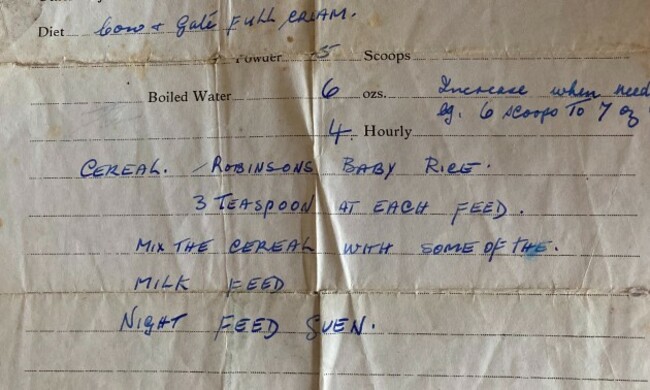 Diet Cow + Gate FULL CREAM.
Powder 5 Scoops
Boiled Water 6 ozs. Increase when need
4 Hourly eg. 6 scoops To 7 oz
CEREAL. ROBINSONS BABY RICE.
3 TEASPOON AT EACH FEED.
MIX THE CEREAL WITH SOME OF THE.
MILK FEED
NIGHT FEED GUEN.